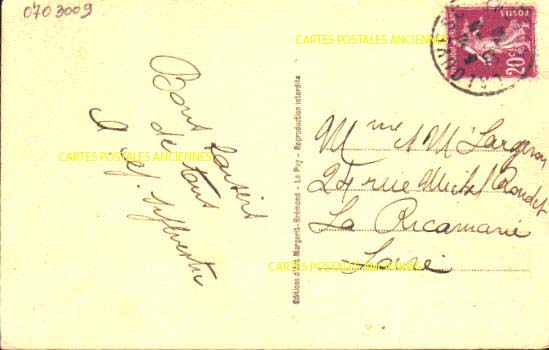 0703009
CARTES POSTALES ANCIENNES
Bons baisers
de tous
CARTES POSTALES ANCIENNES
CARTES POSTALES ANCIENNES
Editions d'Art Margerit-Brémond - Le Puy - Reproduction interdite
POSTES
20c
Mme & Mr
24 rue Michel Rondet
La Ricamarie
Loire